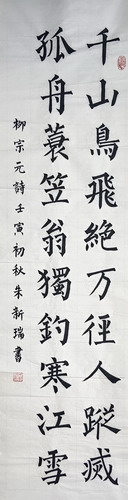 千山鳥飛絕万徑人蹤滅
孤舟蓑笠翁獨釣寒江雪
柳宗元詩壬寅初秋朱新瑞書